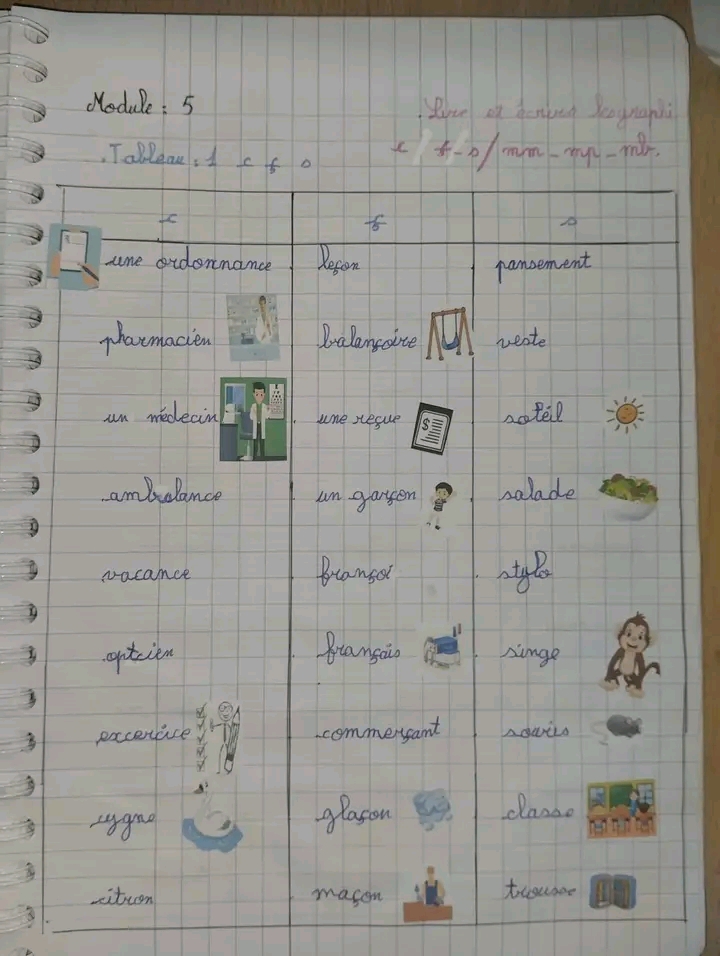 Module : 5
Lire et écrire
.Tableau : 1 c ç s
c / ç - s / mm - mp - mb.
c ç s
une ordonnance leçon pansement
pharmacien balançoire veste
un médecin une reçue soleil
ambulance un garçon salade
vacance françoi stylo
optcien français singe
excercice commerçant souris
cygne glaçon classe
citron maçon trousse